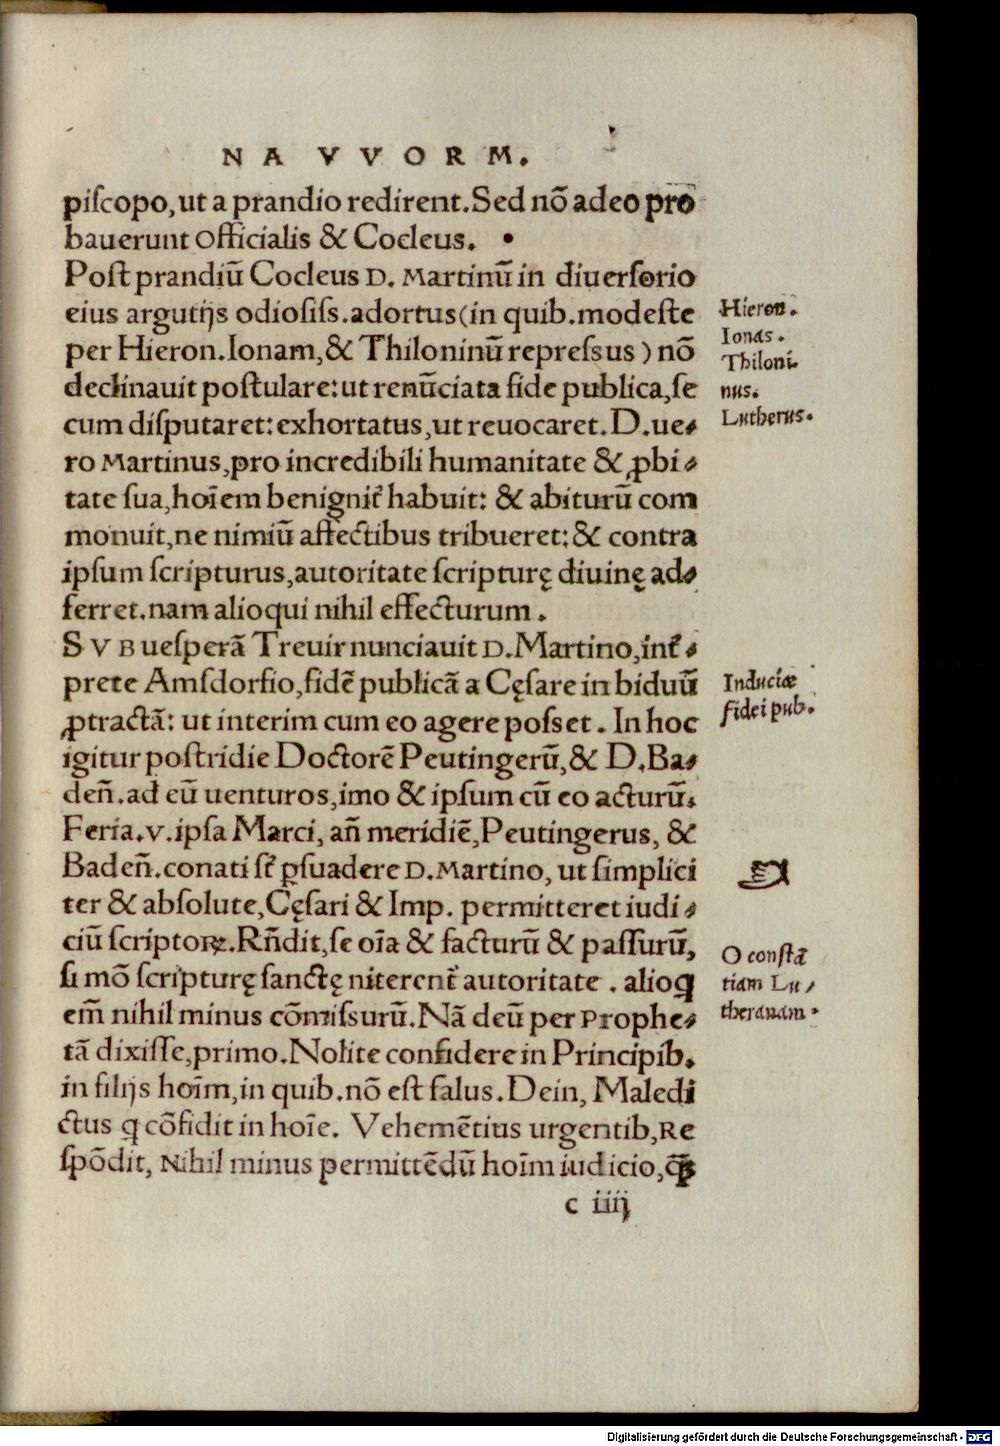 NA VVORM.
piſcopo, ut a prandio redirent. Sed nō adeo pro
bauerunt Officialis & Cocleus.
Poſt prandiū Cocleus D. Martinū in diuerſorio
eius argutijs odioſiſs. adortus (in quib. modeſte
per Hieron. Ionam, & Thiloninū repreſsus) nō
declinauit poſtulare: ut renūciata fide publica, ſe
cum diſputaret: exhortatus, ut reuocaret. D. ue⸗
ro Martinus, pro incredibili humanitate & ꝓbi⸗
tate ſua, hoīem benignit̄ habuit: & abiturū com
monuit, ne nimiū affectibus tribueret: & contra
ipſum ſcripturus, autoritate ſcripturę diuinę ad⸗
ferret. nam alioqui nihil effecturum.
SVB ueſperā Treuir nunciauit D. Martino, int̄⸗
prete Amſdorfio, fidē publicā a Cęſare in biduū
ꝓtractā: ut interim cum eo agere poſset. In hoc
igitur poſtridie Doctorē Peutingerū, & D. Ba⸗
den̄. ad eū uenturos, imo & ipſum cū eo acturū.
Feria. v. ipſa Marci, an̄ meridiē, Peutingerus, &
Baden̄. conati ſt̄ ꝑſuadere D. Martino, ut ſimplici
ter & abſolute, Cęſari & Imp. permitteret iudi⸗
ciū ſcriptoꝝ. Rn̄dit, ſe oīa & facturū & paſſurū,
ſi mō ſcripturę ſanctę niterent̄ autoritate. alioꝗ
em̄ nihil minus cōmiſsurū. Nā deū per Prophe⸗
tā dixiſſe, primo. Nolite confidere in Principib.
in filijs hoīm, in quib. nō eſt ſalus. Dein, Maledi
ctus ꝗ cōfidit in hoīe. Vehemētius urgentib, Re
ſpōdit, Nihil minus permittēdū hoīm iudicio, ꝙ̄
c iiij
Hieron.
Ionas.
Thiloni⸗
nus.
Lutherus.
Induciæ
fidei pub.
O conſtā
tiam Lu⸗
theranam.
Digitalisierung gefördert durch die Deutsche Forschungsgemeinschaft - DFG